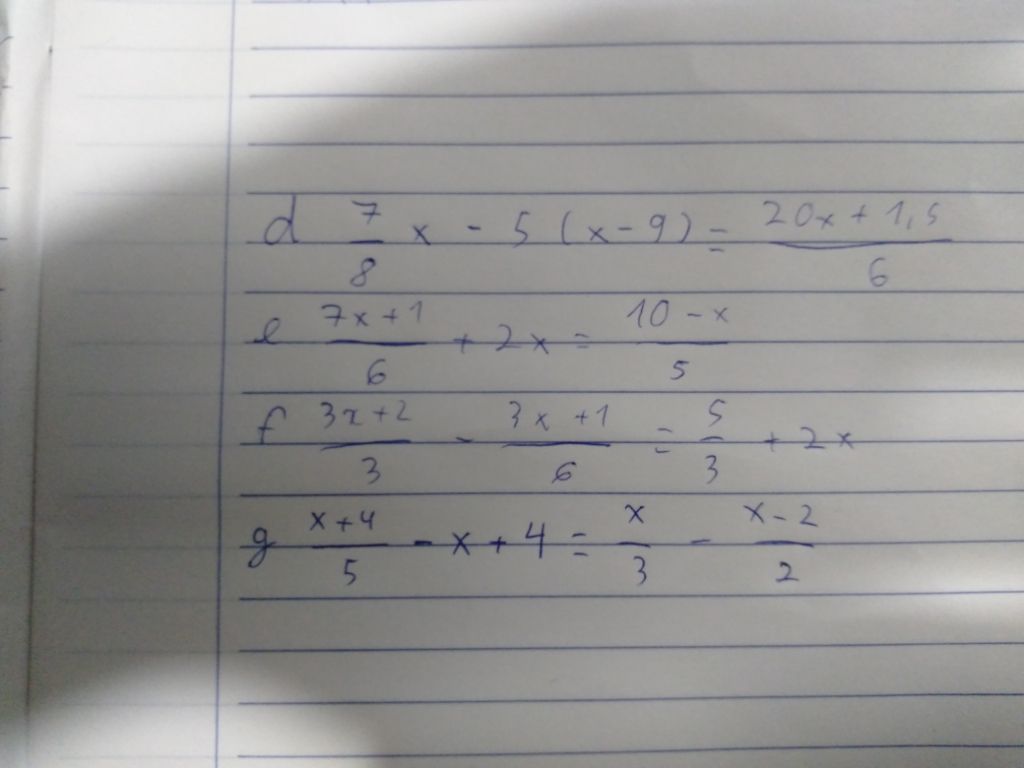 d 7/8 x - 5 (x-9) = 20x + 1,5 / 6
e 7x+1 / 6 + 2x = 10 - x / 5
f 3x+2 / 3 - 3x+1 / 6 = 5/3 + 2x
g x+4 / 5 - x + 4 = x/3 - x-2 / 2